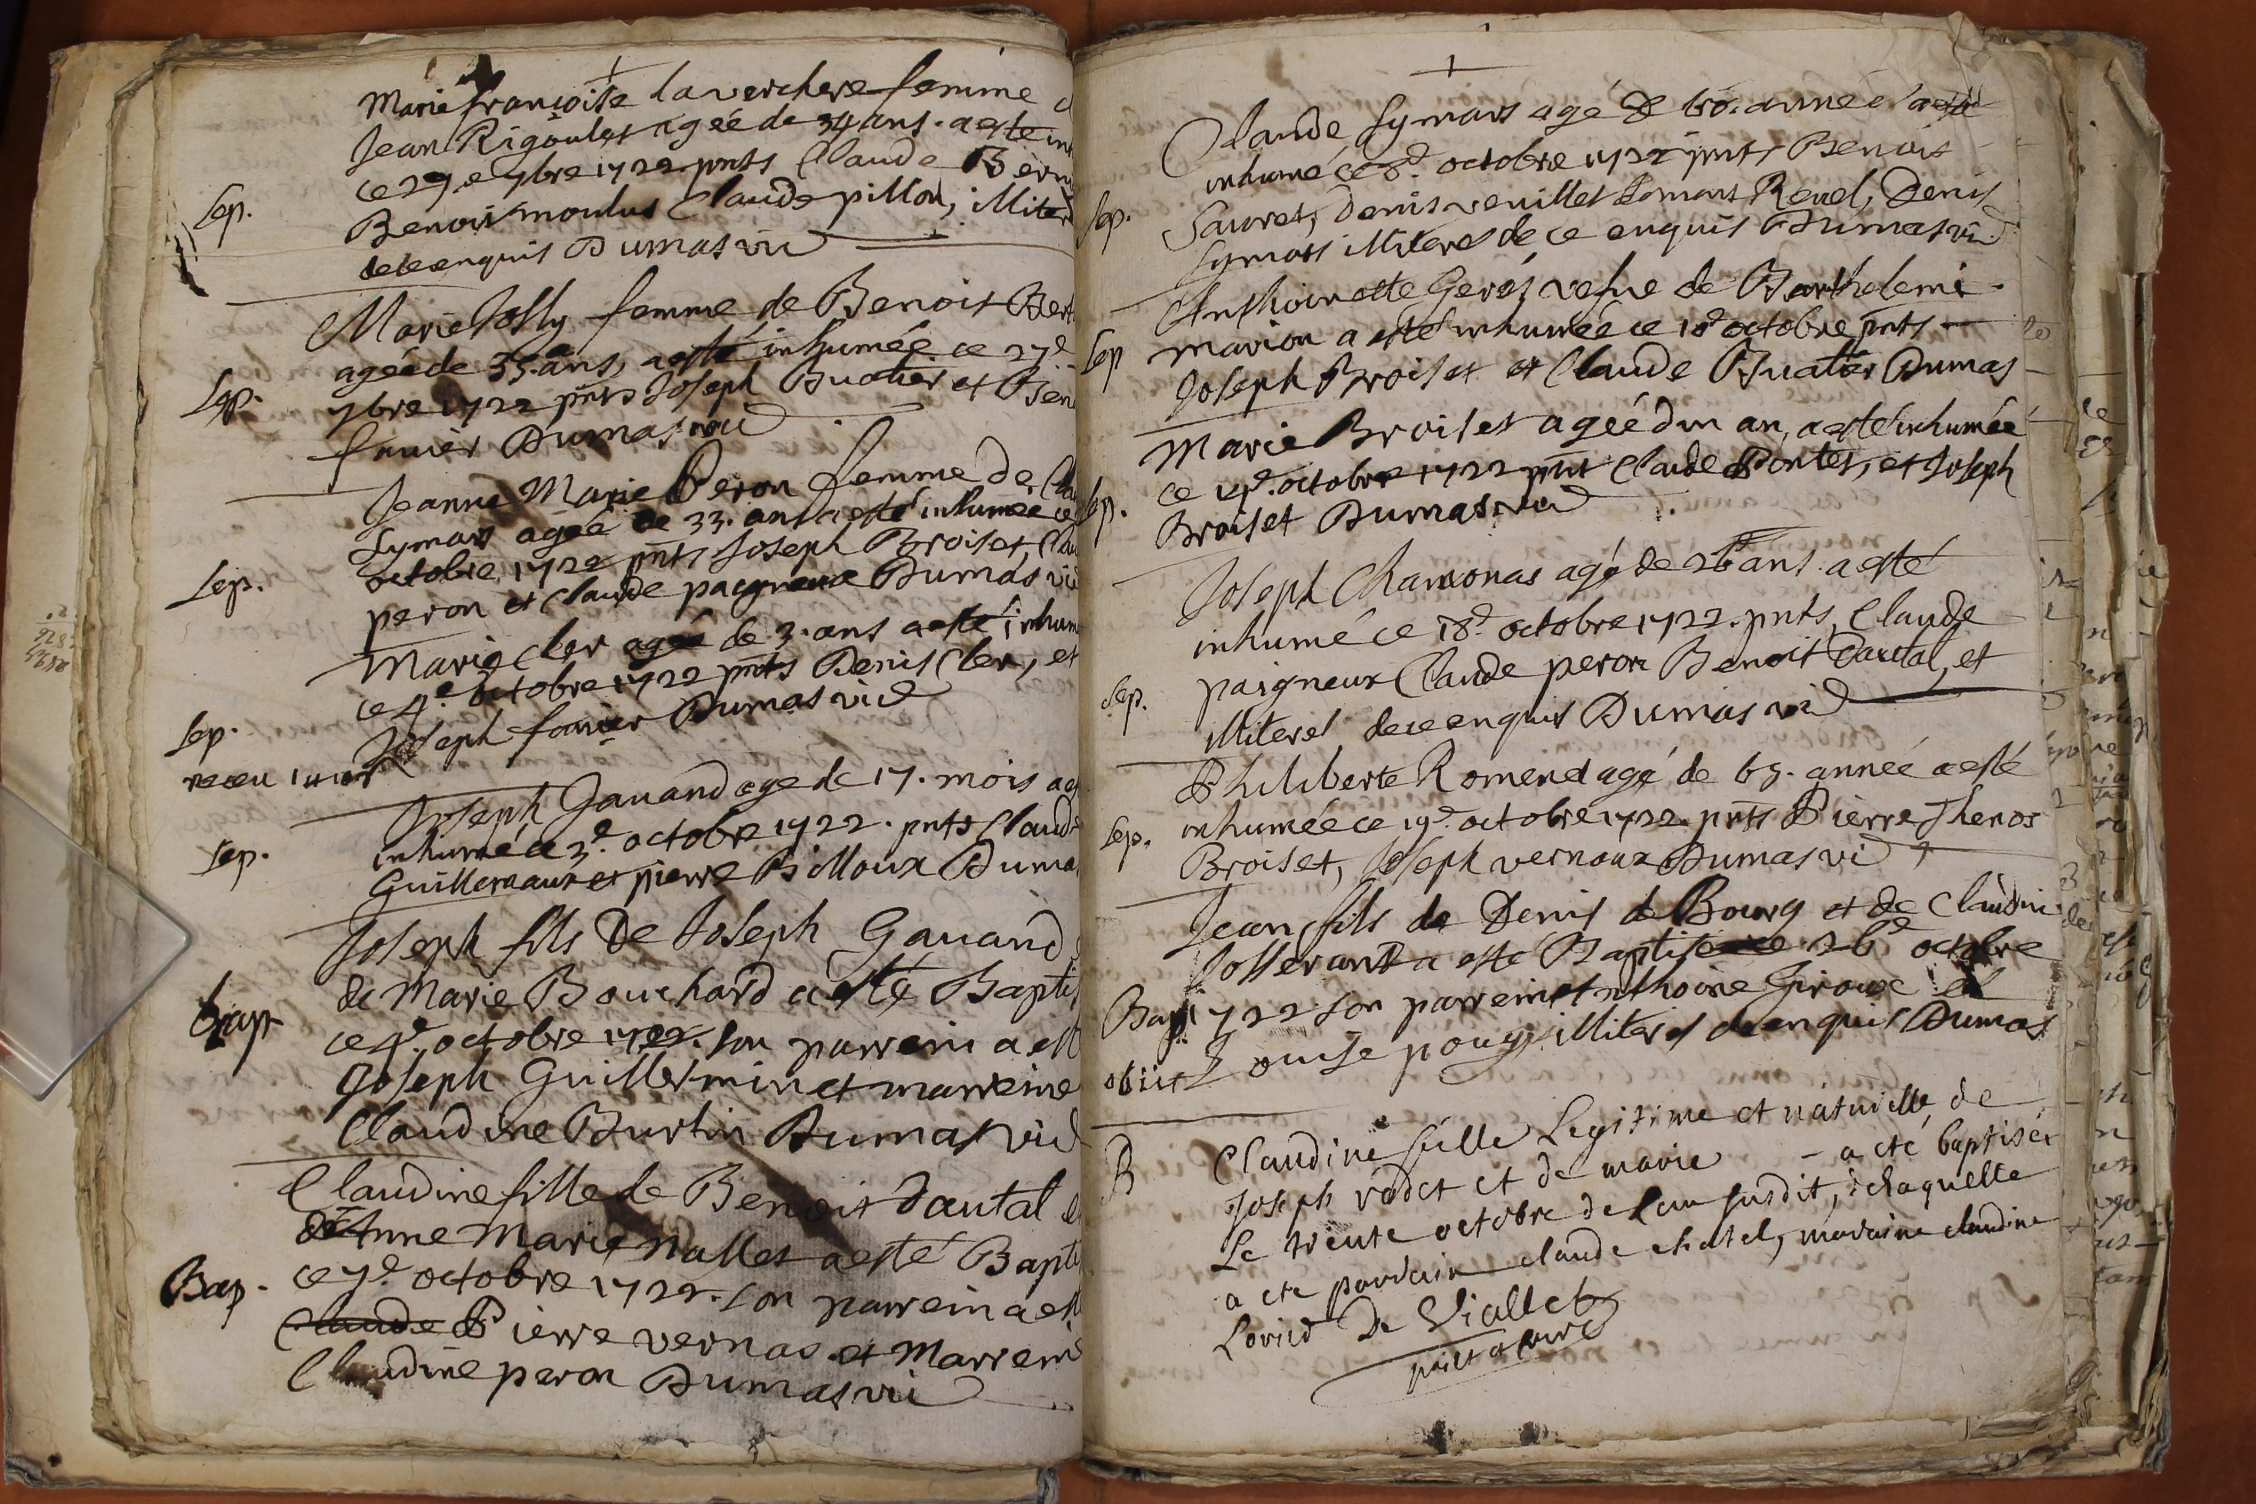 Marie françoise laverchere femme
Jean Rigoulet agée de 34 ans. a esté
ce 29e 7bre 1722 pnts Claude
Sep.
Benoit moulus Claude pillon, illiter
de ce enquis Dumas vic
Marie Jolly femme de Benoit
agée de 35. ans, a esté inhumée ce 27e
Sep.
7bre 1722 pnts Joseph Buatier et
Dumas vic
Jeanne Marie Peron femme de
Symars agée de 33. ans a esté inhumée ce
Sep.
octobre 1722 pnts Joseph Broiset,
peron et Claude paigneux Dumas vic
Marie Cler agée de 3. ans a esté inhum
ce 4e octobre 1722 pnts Denis Cler, et
Sep.
Joseph Dumas vic
Joseph Gauand age de 17. mois
Sep.
inhumé ce 3e. octobre 1722. pnts Claude
Guillemaux et pierre Billoux Dumas
Joseph fils De Joseph Gauand
de Marie Bouchard a esté Baptis
bap
ce 4e. octobre 1722. son parrein a est
Joseph Guillermin et marreine
Claudine Burtin Dumas vic
Claudine fille de Benoit dautal
de Anne Marie nallet a esté Bapti
Bap.
ce 7e. octobre 1722. son parrein a est
Claude Pierre vernas et Marrein
Claudine peron Dumas vic
Claude Symars agé de 60. année a esté
inhumé ce 8e. octobre 1722 pnts Benoit
Sep.
Sauret, Denis veuillet Revel, Denis
Symars illiteres de ce enquis Dumas vic
Anthoinette Geres vefue de Barthelemi
Sep
marion a esté inhumée ce 18e octobre pnts
Joseph Broiset et Claude Buatier Dumas
Marie Broiset agée d'un an, a esté inhumée
ce octobre 1722 pnts Claude Pontet, et Joseph
Sep.
Broiset Dumas vic
Joseph Chamonas agé de 26 ans a esté
inhumé ce 18e. octobre 1722. pnts, Claude
Sep.
paigneux Claude peron Benoit Dautal, et
illiteres de ce enquis Dumas vic
Philiberte Romenet agé de 65. année a esté
inhumée ce 19e. octobre 1722. pnts Pierre Thenos
Sep.
Broiset, Joseph vernoux Dumas vic
Jean fils de Denis de Bourg et de Claudine
Josserant a esté Baptisé ce 26e octobre
Bap
1722 son parrein Anthoine Giroux et
obiit
Louise pougy illiteres de enquis Dumas
B
Claudine fille Legitime et naturelle de
Joseph vadet et de marie - a eté baptisée
Le trente octobre de l'an susdit, de laquelle
a ete pardain claude chatel, mardaine claudine
Lorisd De Viallet